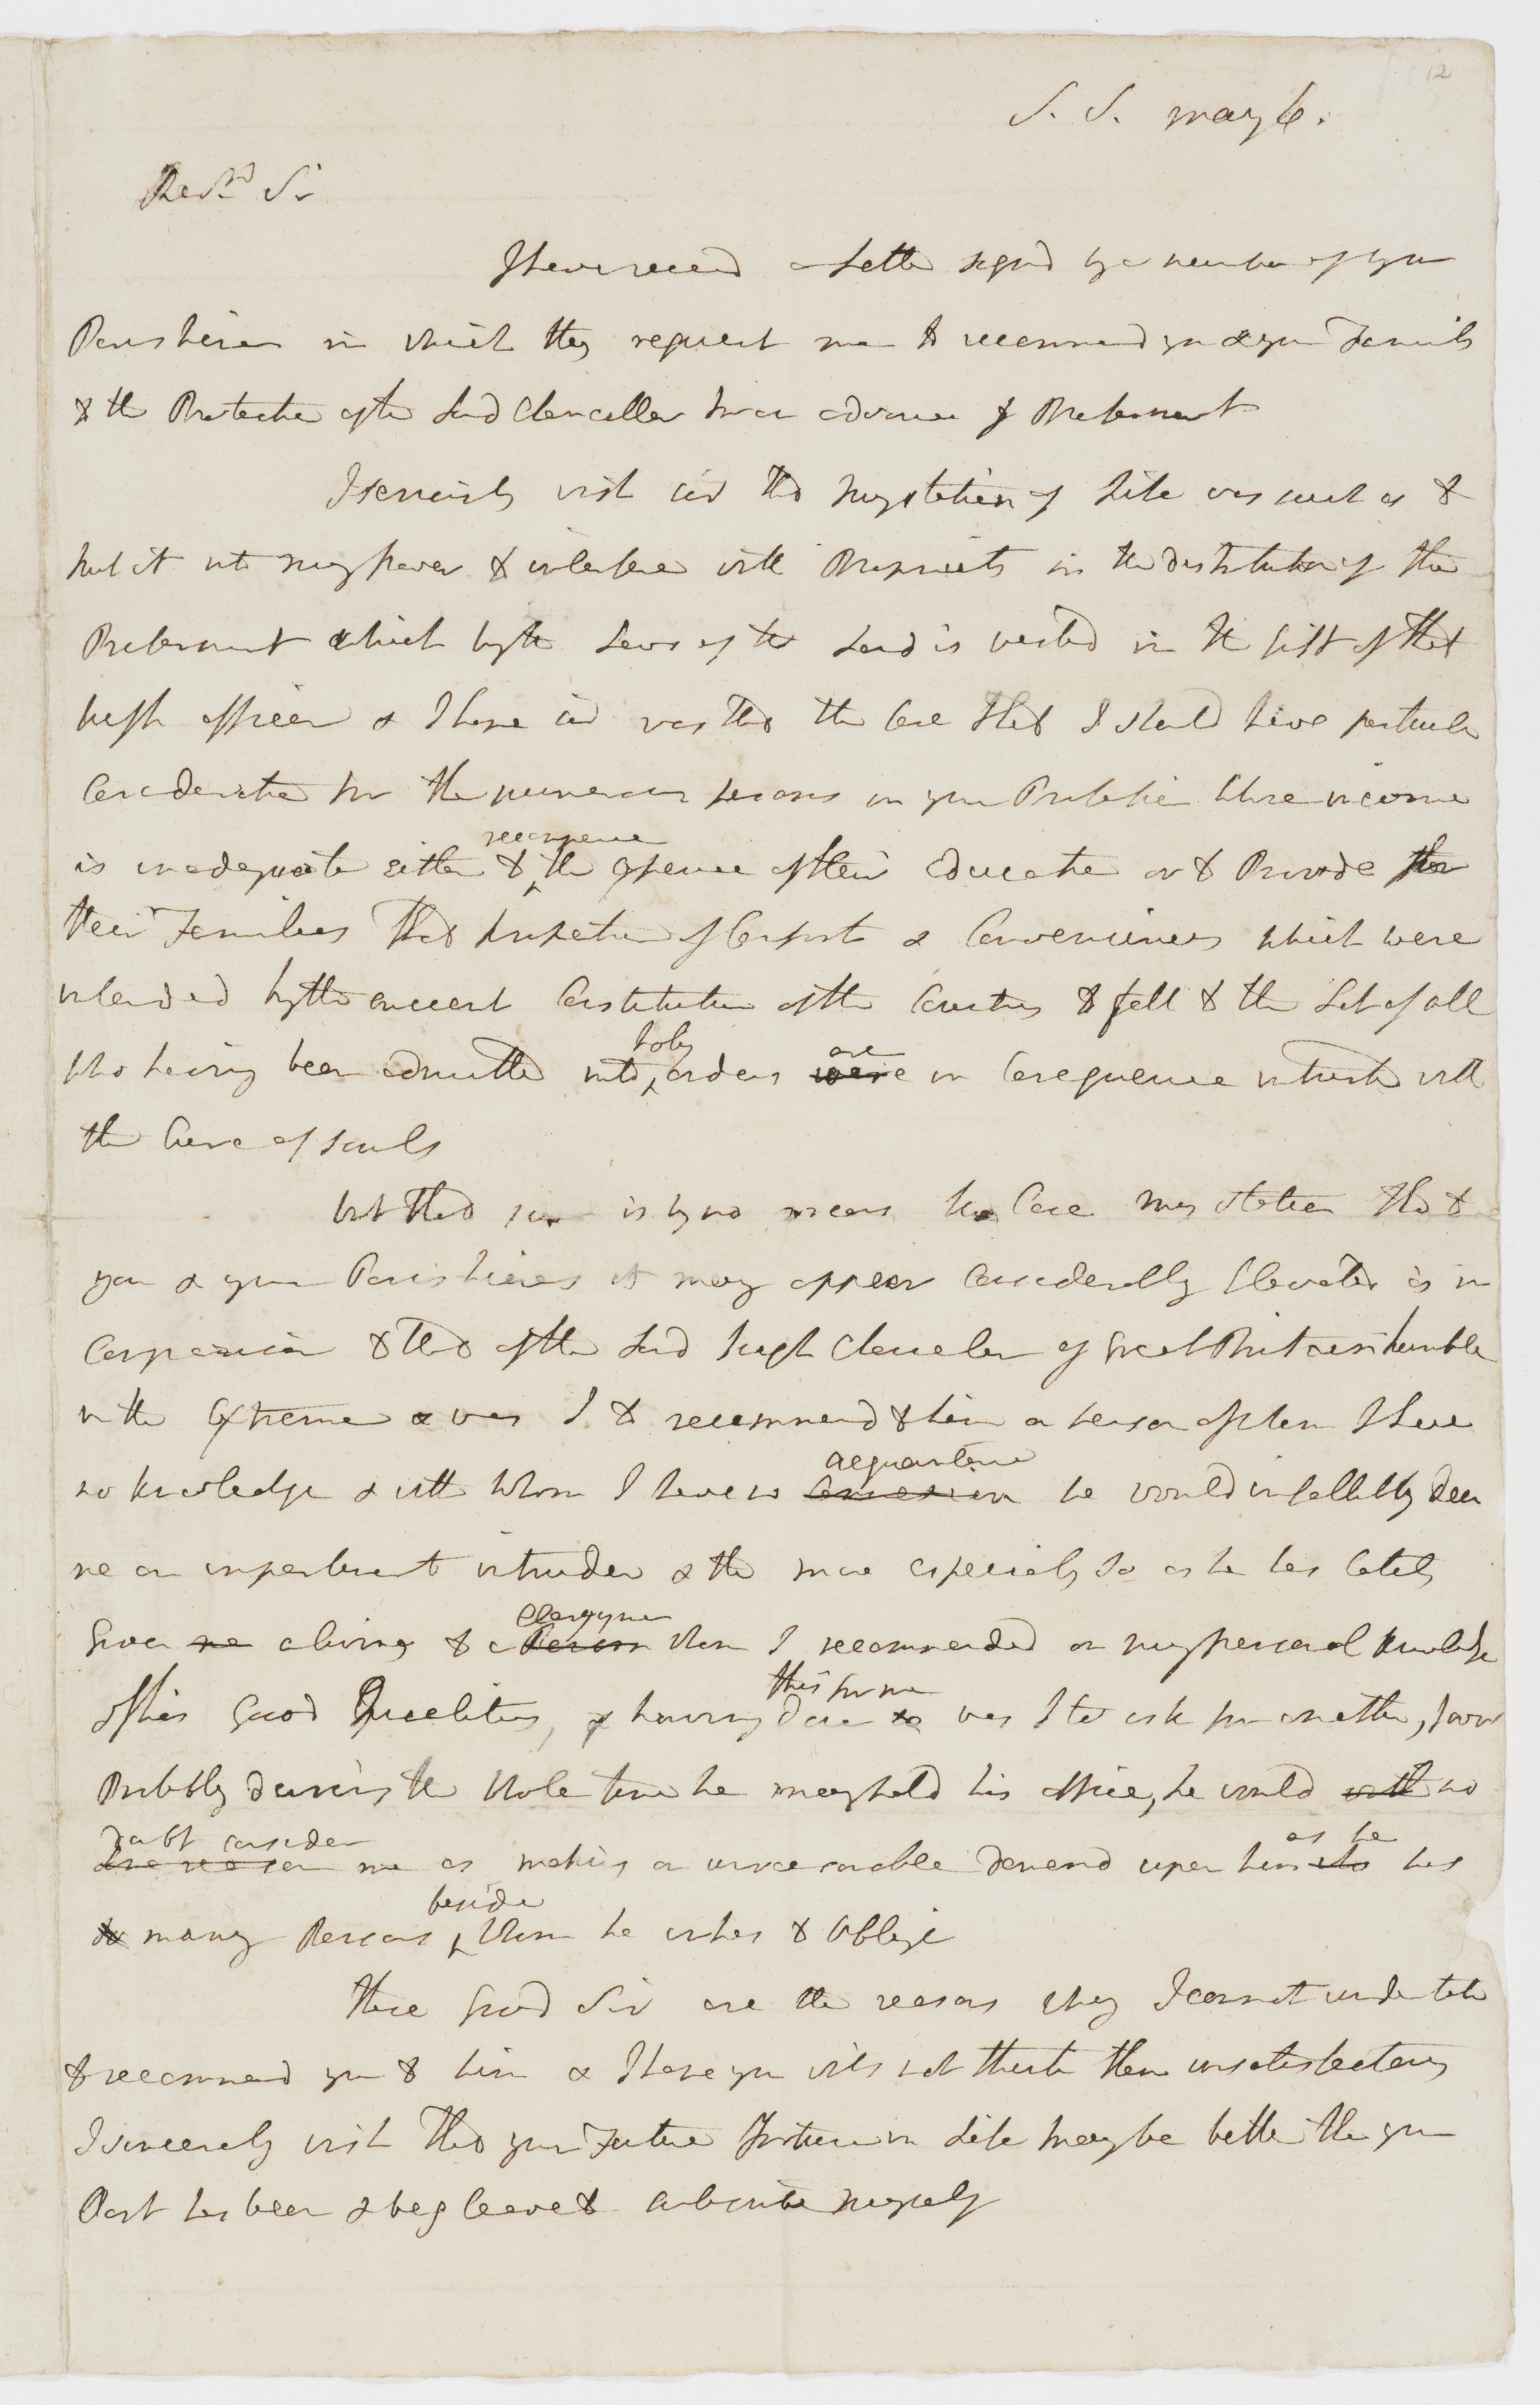 12
S. S. may 6.
Revrd Sr
I have receivd a Letter signd by a number of your
Parishiners in which they request me to recommend you & your Family
to the Protection of the Lord Chancellor for an advance of Preferment
I sencerely wish Sir that my station of Life was such as to
Put it into my Power to interfere with Propriety in the distribution of the
Preferment which by the Laws of the Land is vested in the Gift of that
high officer & I hope Sir was that the Case that I should have particular
Consideration for the numerous persons in your Profession whose income
is inadequate either to
recompence
the Expence of their Education or to Provide for
their Families that proportion of Comfort & Conveniences which were
intended by the ancient Constitution of the Country to fall to the Lot of all
who having been admitted into
holy
orders
are
were in Consequence intrusted with
the Cure of souls
but that Sir is by no means the Case my station tho to
you & your Parishiners it may appear Considerably Elevated is in
Comparison to that of the Lord high Chancelor of Great Britain humble
in the Extreme & was I to recommend to him a Person of whom I have
no knowledge & with whom I have no
acquaintance
Connexion he would infallibly deem
me an impertinent intruder & the more especially so as he has lately
Given me a living to a
Clergyman
Person whom I recommended on my personal knowledge
of his Good Qualities, & having done
this for me
so was I to ask for another, favor
Probably during the whole time he may hold his office, he would with no
doubt consider
me as making an unreasonable demand upon him
as he
who has
so many Persons
beside
whom he wishes to Oblige
These Good Sir are the reasons why I cannot undertake
to recommend you to him & I hope you will not think them unsatisfactory
I sincerely wish that your Future Fortune in Life may be better than your
Past has been & beg leave to subscribe myself